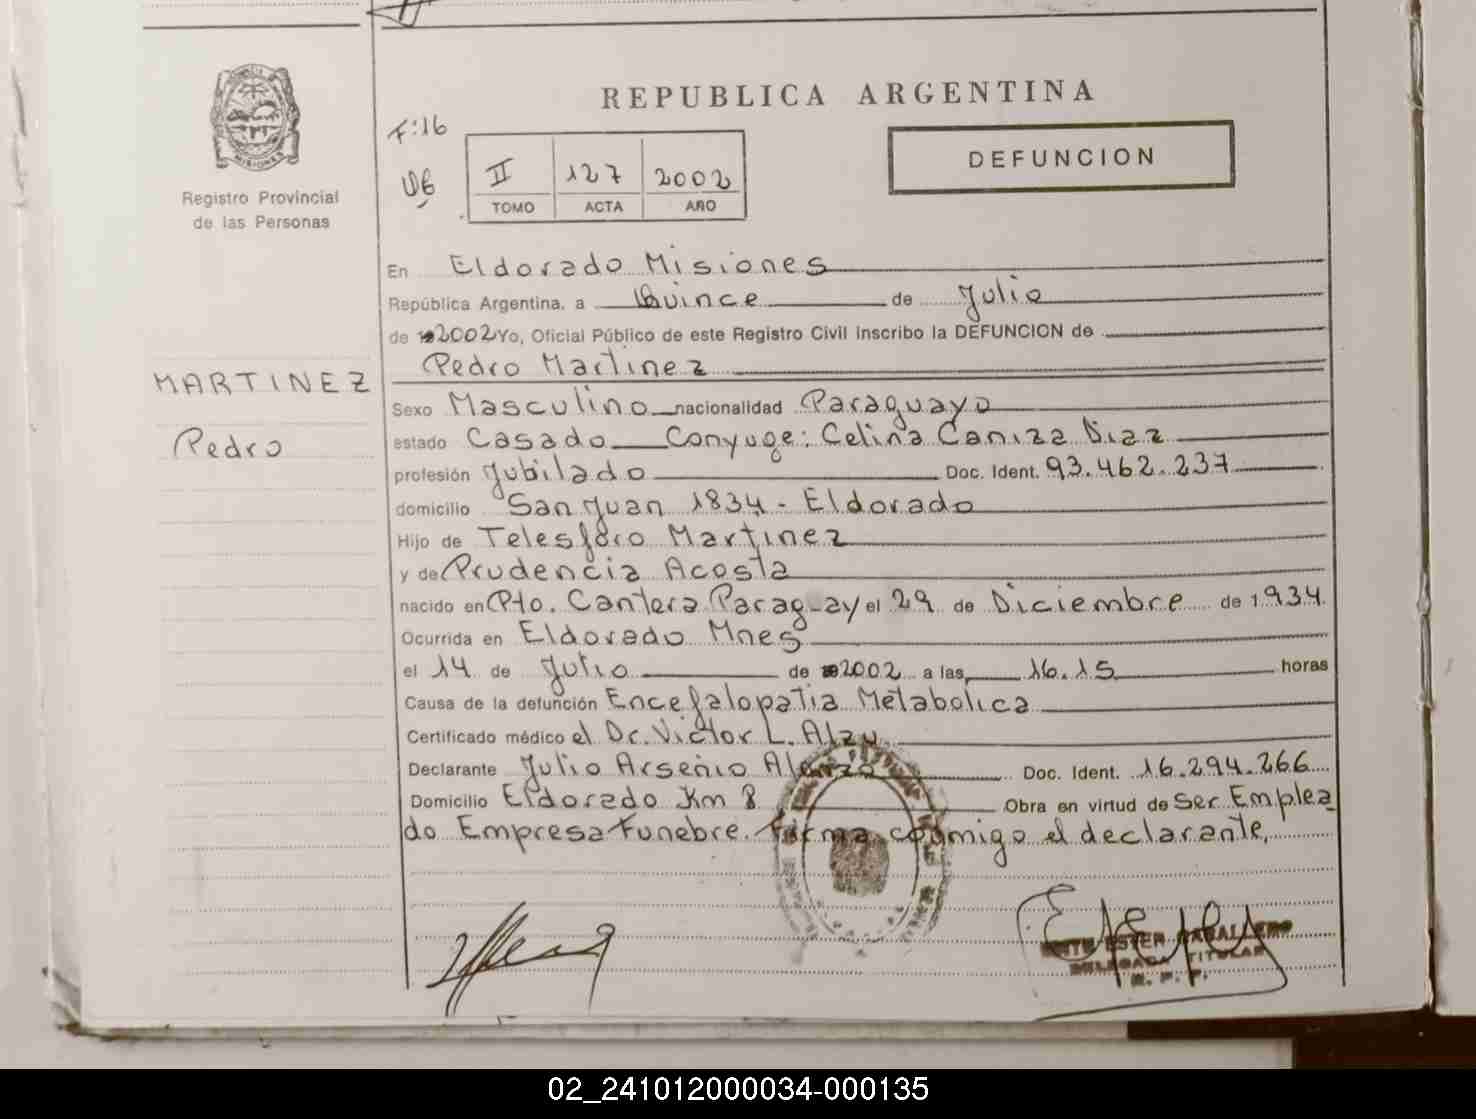 REPUBLICA ARGENTINA
F:16
II 127 2002
TOMO ACTA AÑO
DEFUNCION
MISIONES
Registro Provincial
de las Personas
MARTINEZ
Pedro
En Eldorado Misiones
República Argentina, a Quince de Julio
de 2002 Yo, Oficial Público de este Registro Civil Inscribo la DEFUNCION de
Pedro Martinez
Sexo Masculino nacionalidad Paraguayo
estado Casado Conyuge: Celina Caniza Diaz
profesión Jubilado Doc. Ident. 93.462.237
domicilio San Juan 1834 - Eldorado
Hijo de Telesforo Martinez
y de Prudencia Acosta
nacido en Pto. Cantera Paraguay el 29 de Diciembre de 1.934
Ocurrida en Eldorado Mnes
el 14 de Julio de 2002 a las 16.15 horas
Causa de la defunción Encefalopatia Metabolica
Certificado médico el Dr. Victor L. Alzu
Declarante Julio Arsenio Doc. Ident. 16.294.266
Domicilio Eldorado Km 8 Obra en virtud de Ser Emplea
do Empresa Funebre. Firma conmigo el declarante,
ESTER CABALLERO
DELEGADA TITULAR
R. P. P.
02_241012000034-000135